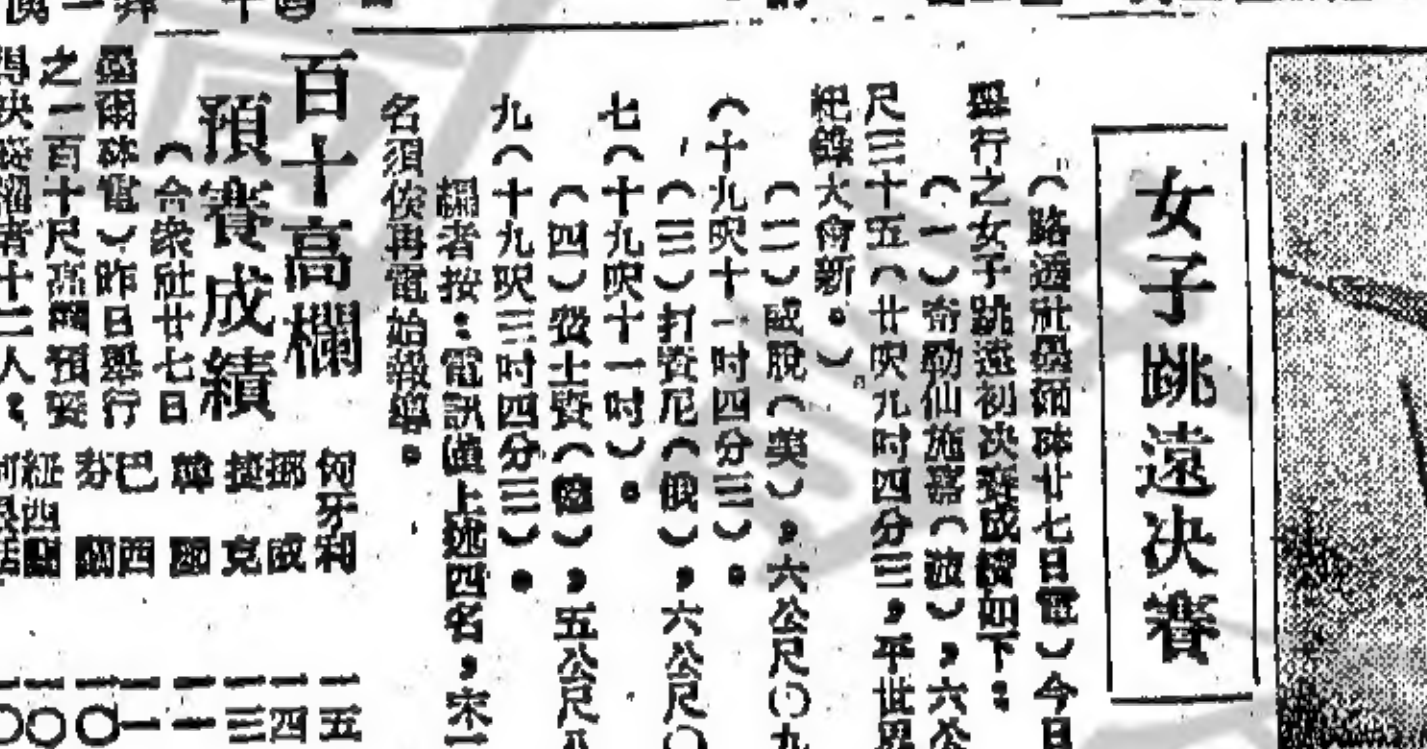 女子跳遠決賽
（路透社墨爾砵廿七日電）今日
舉行之女子跳遠初次賽成績如下：
（一）齊勒仙施嘉（波），六公
尺三十五（廿呎九吋四分三，平世界
紀錄大會新。）
（二）威脫（美），六公尺〇九
（十九呎十一吋四分三）。
（三）打資尼（俄），六公尺〇
七（十九呎十一吋）。
（四）費士賢（德），五公尺八
九（十九呎三吋四分三）。
編者按：電訊僅上述四名，宋
名須俟再電始報導。
百十高欄
預賽成績
（合衆社廿七日
墨爾砵電）昨日舉行
之一百十尺高欄預賽
十二人：
匈牙利 一五
挪威 一四
捷克 一三
韓國 一一
巴西 一一
芬蘭 一〇
紐西蘭 一〇